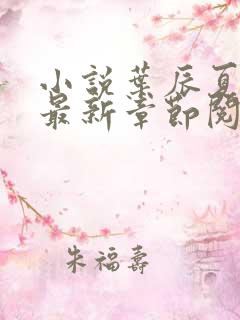 小說葉辰夏
最新章節閱
朱福壽